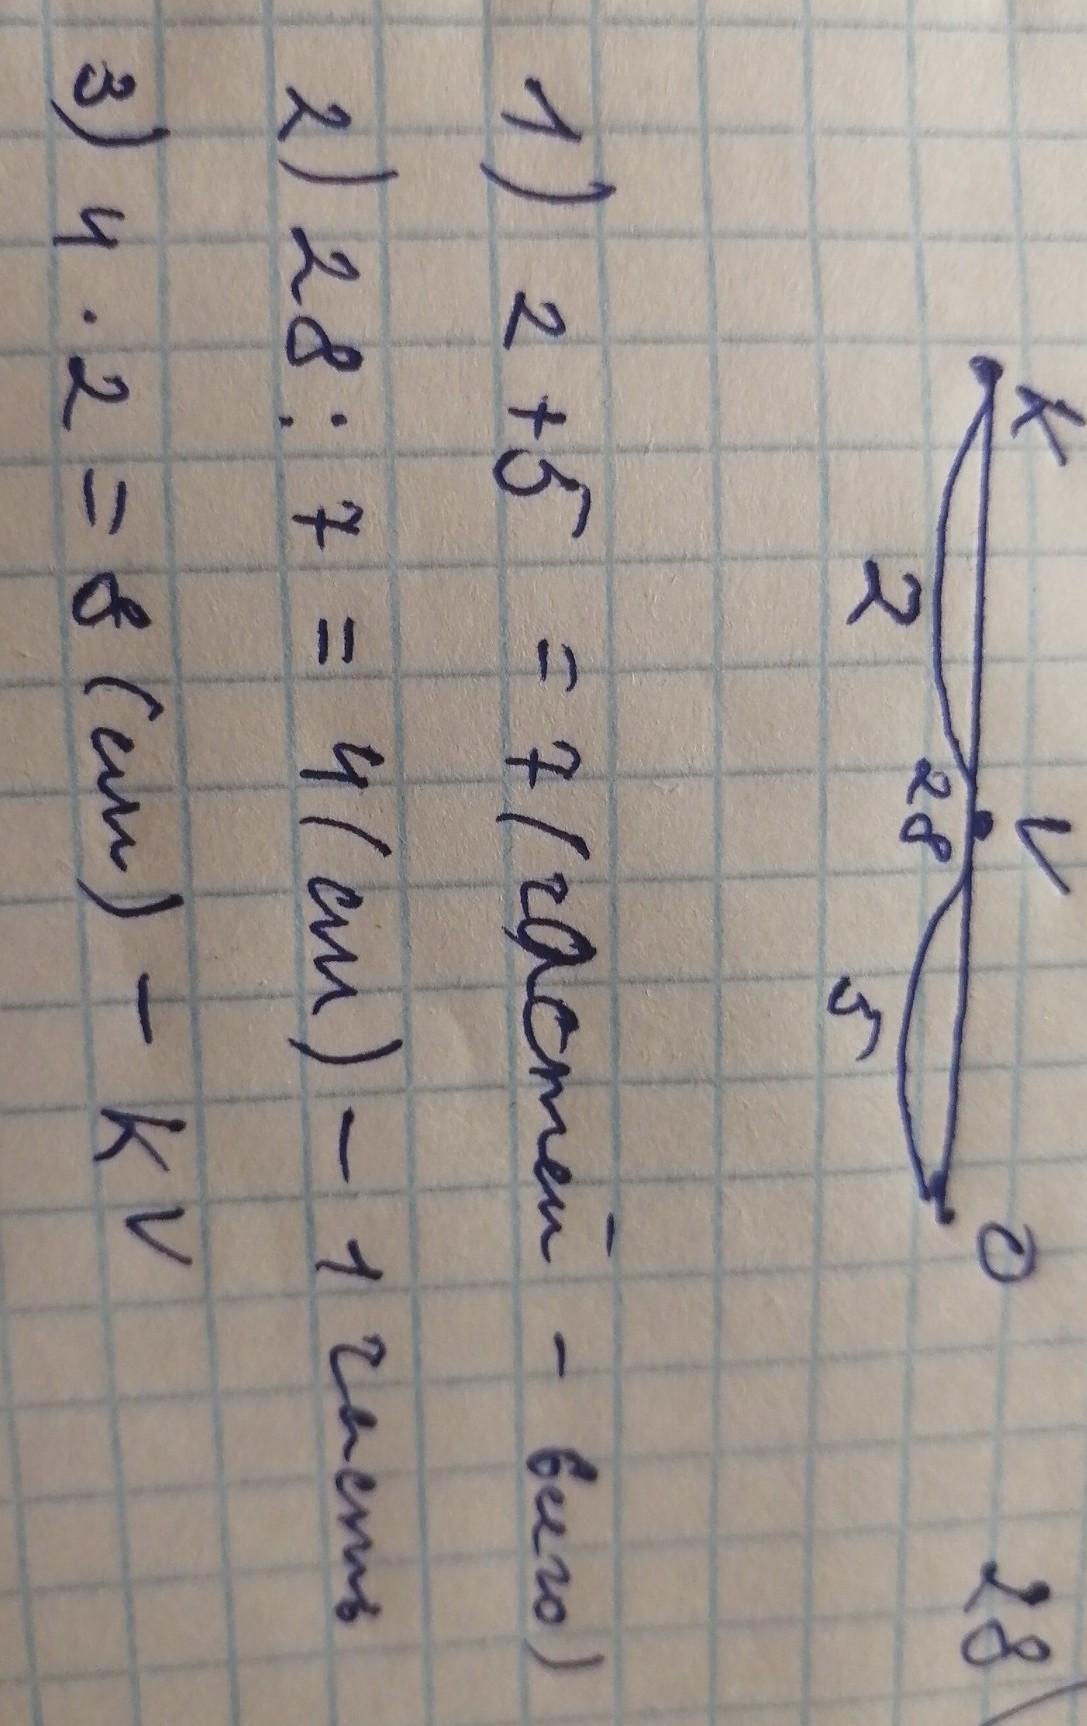 K V O 28
2 28 5
1) 2 + 5 = 7 (частей - всего)
2) 28 : 7 = 4 (см) - 1 часть
3) 4 · 2 = 8 (см) - KV